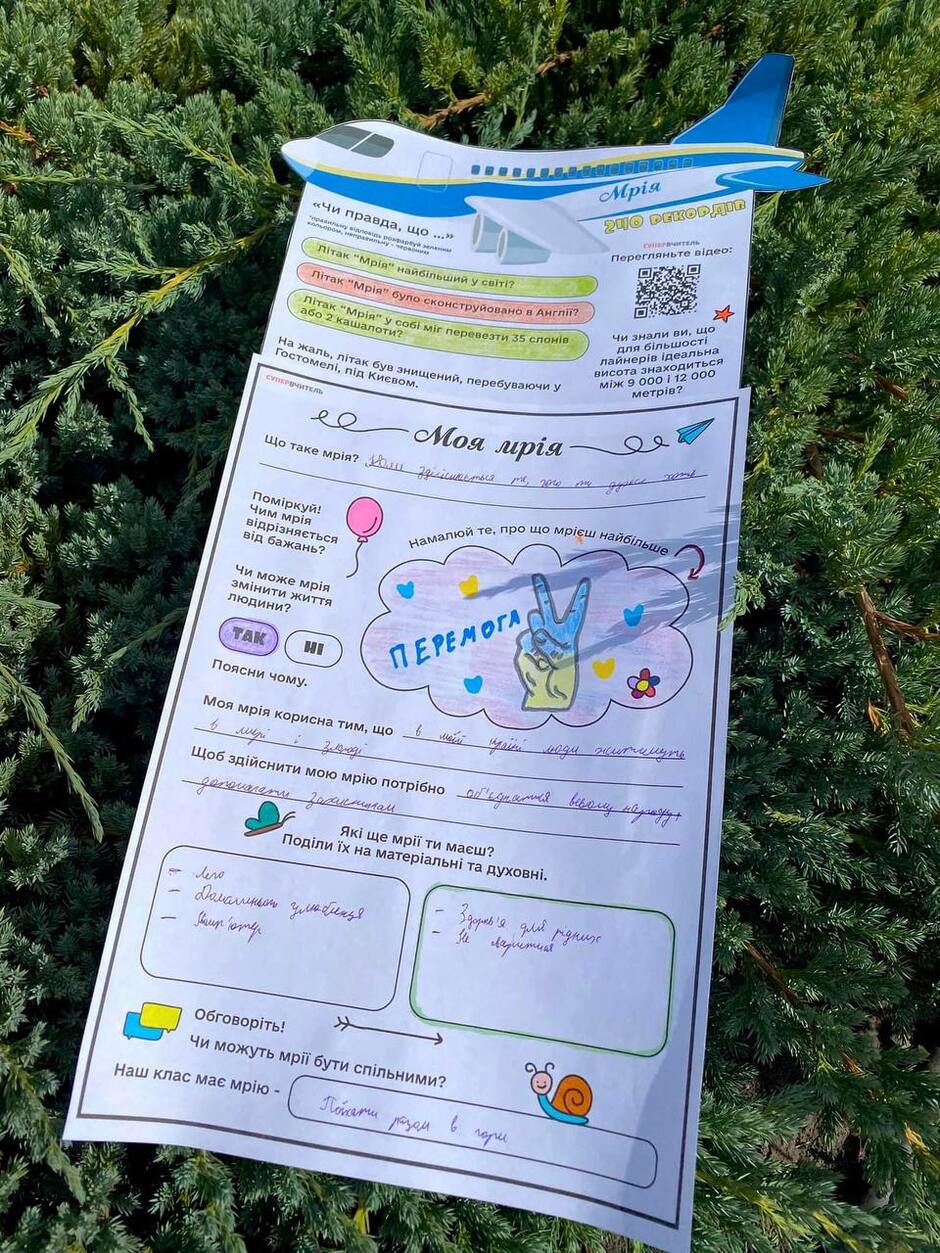 Мрія
240 РЕКОРДІВ
«Чи правда, що ...»
*правильну відповідь розфарбуй зеленим
кольором, неправильну - червоним
Літак "Мрія" найбільший у світі?
Літак "Мрія" було сконструйовано в Англії?
Літак "Мрія" у собі міг перевезти 35 слонів
або 2 кашалоти?
На жаль, літак був знищений, перебуваючи у
Гостомелі, під Києвом.
СУПЕРВЧИТЕЛЬ
Перегляньте відео:
Чи знали ви, що
для більшості
лайнерів ідеальна
висота знаходиться
між 9 000 і 12 000
метрів?
СУПЕРВЧИТЕЛЬ
Моя мрія
Що таке мрія? Коли здійснюється те, чого ти дуже
Поміркуй!
Чим мрія
відрізняється
від бажань?
Намалюй те, про що мрієш найбільше
ПЕРЕМОГА
Чи може мрія
змінити життя
людини?
ТАК НІ
Поясни чому.
Моя мрія корисна тим, що в моїй країні люди житимуть
в мирі і злагоді
Щоб здійснити мою мрію потрібно об'єднатися всьому народу,
допомагати Захисникам
Які ще мрії ти маєш?
Поділи їх на матеріальні та духовні.
- Лего
- Домашнього улюбленця
- Комп'ютер
- Здоров'я для рідних
- Не сваритися
Обговоріть!
Чи можуть мрії бути спільними?
Наш клас має мрію - Поїхати разом в гори